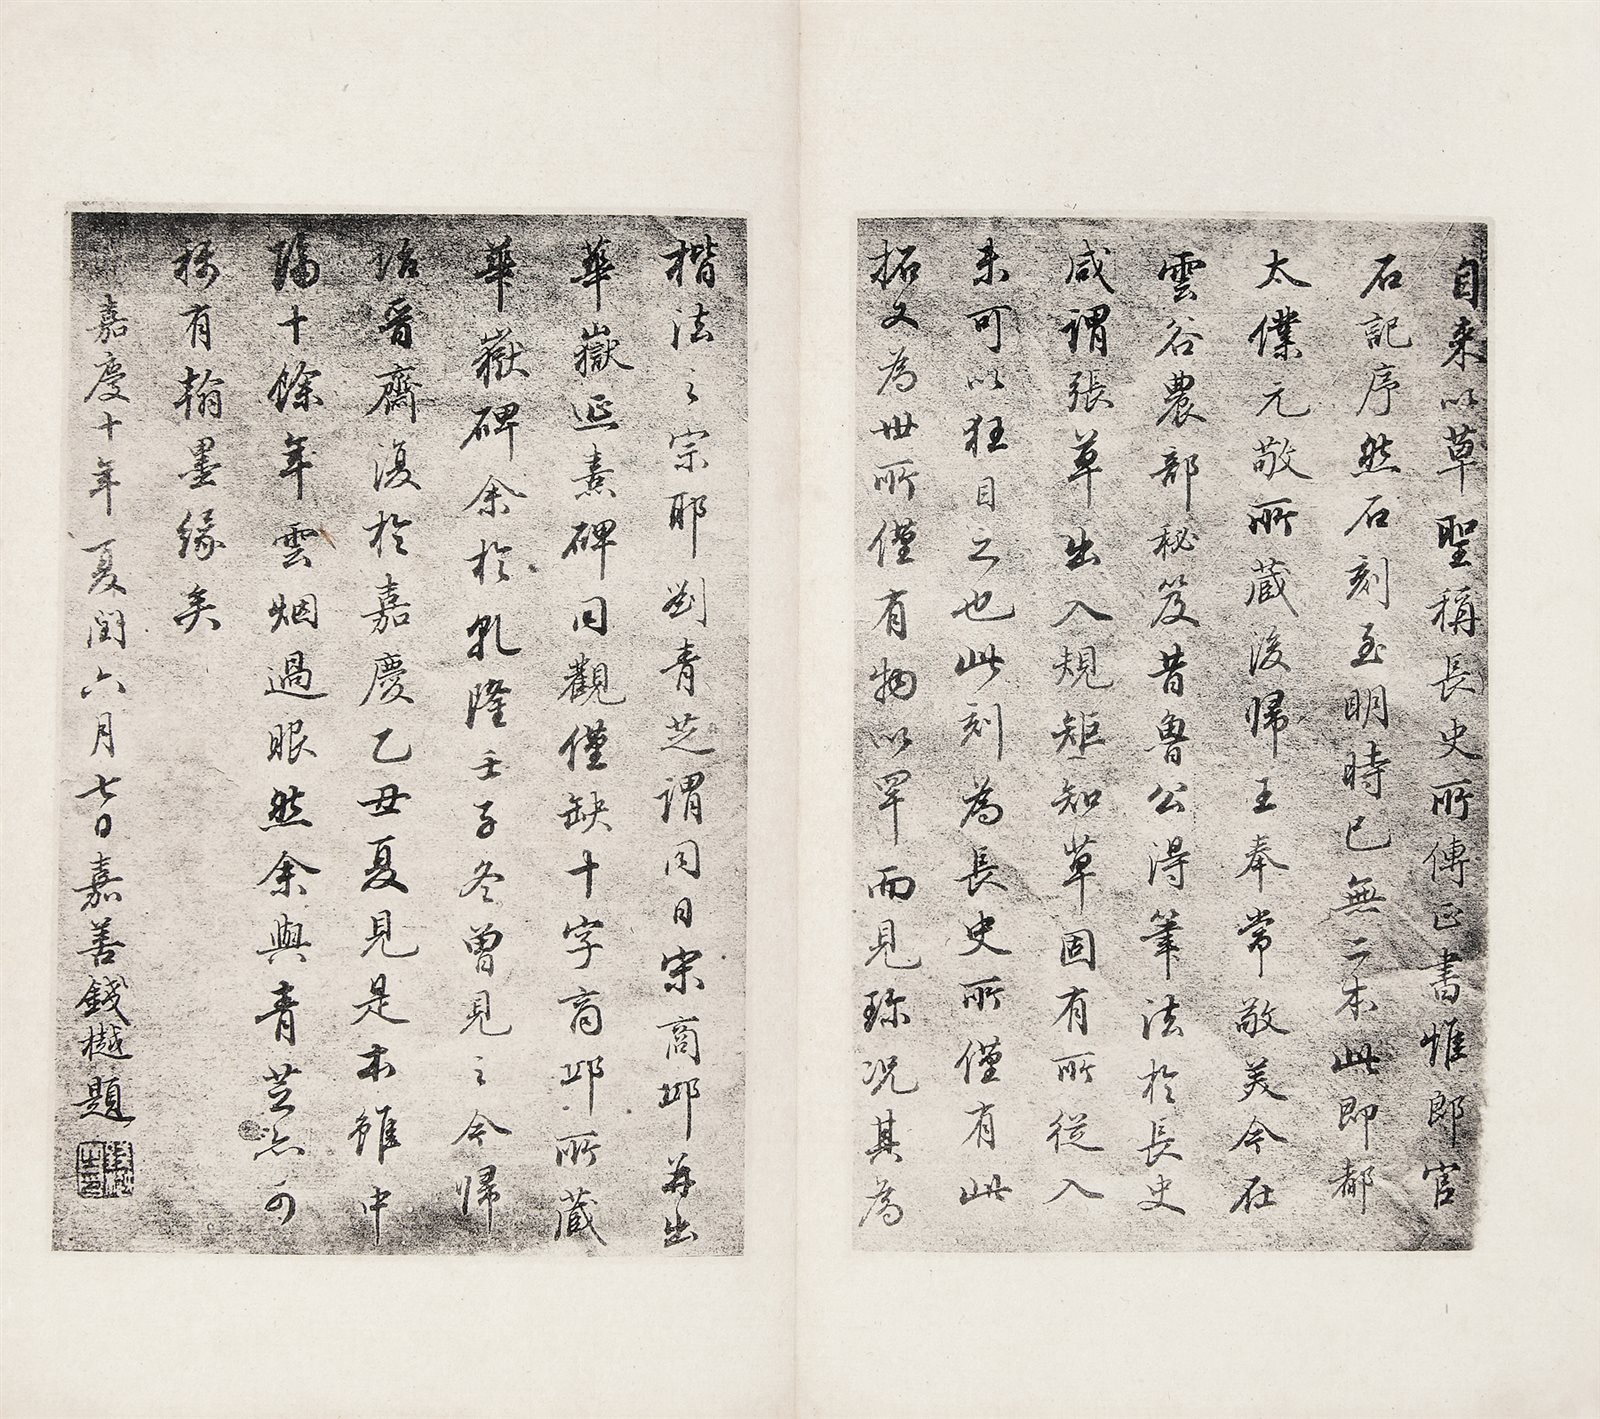 自來以草聖稱長史所傳正書惟郎官
石記序然石刻至明時已無二本此即都
太僕元敬所藏後歸王奉常敬美今在
雲谷農部秘笈昔魯公得筆法於長史
咸謂張草出入規矩知草固有所從入
未可以狂目之也此刻為長史所僅有此
拓又為世所僅有物以罕而見珍况其為
楷法之宗耶劉青芝謂同日宋商邱並出
華嶽延熹碑同觀僅缺十字商邱所藏
華嶽碑余於乾隆壬子冬曾見之今歸
詒晉齋復於嘉慶乙丑夏見是本雖中
隔十餘年雲烟過眼然余與青芝亦可
稱有翰墨緣矣
嘉慶十年夏閏六月七日嘉善錢樾題